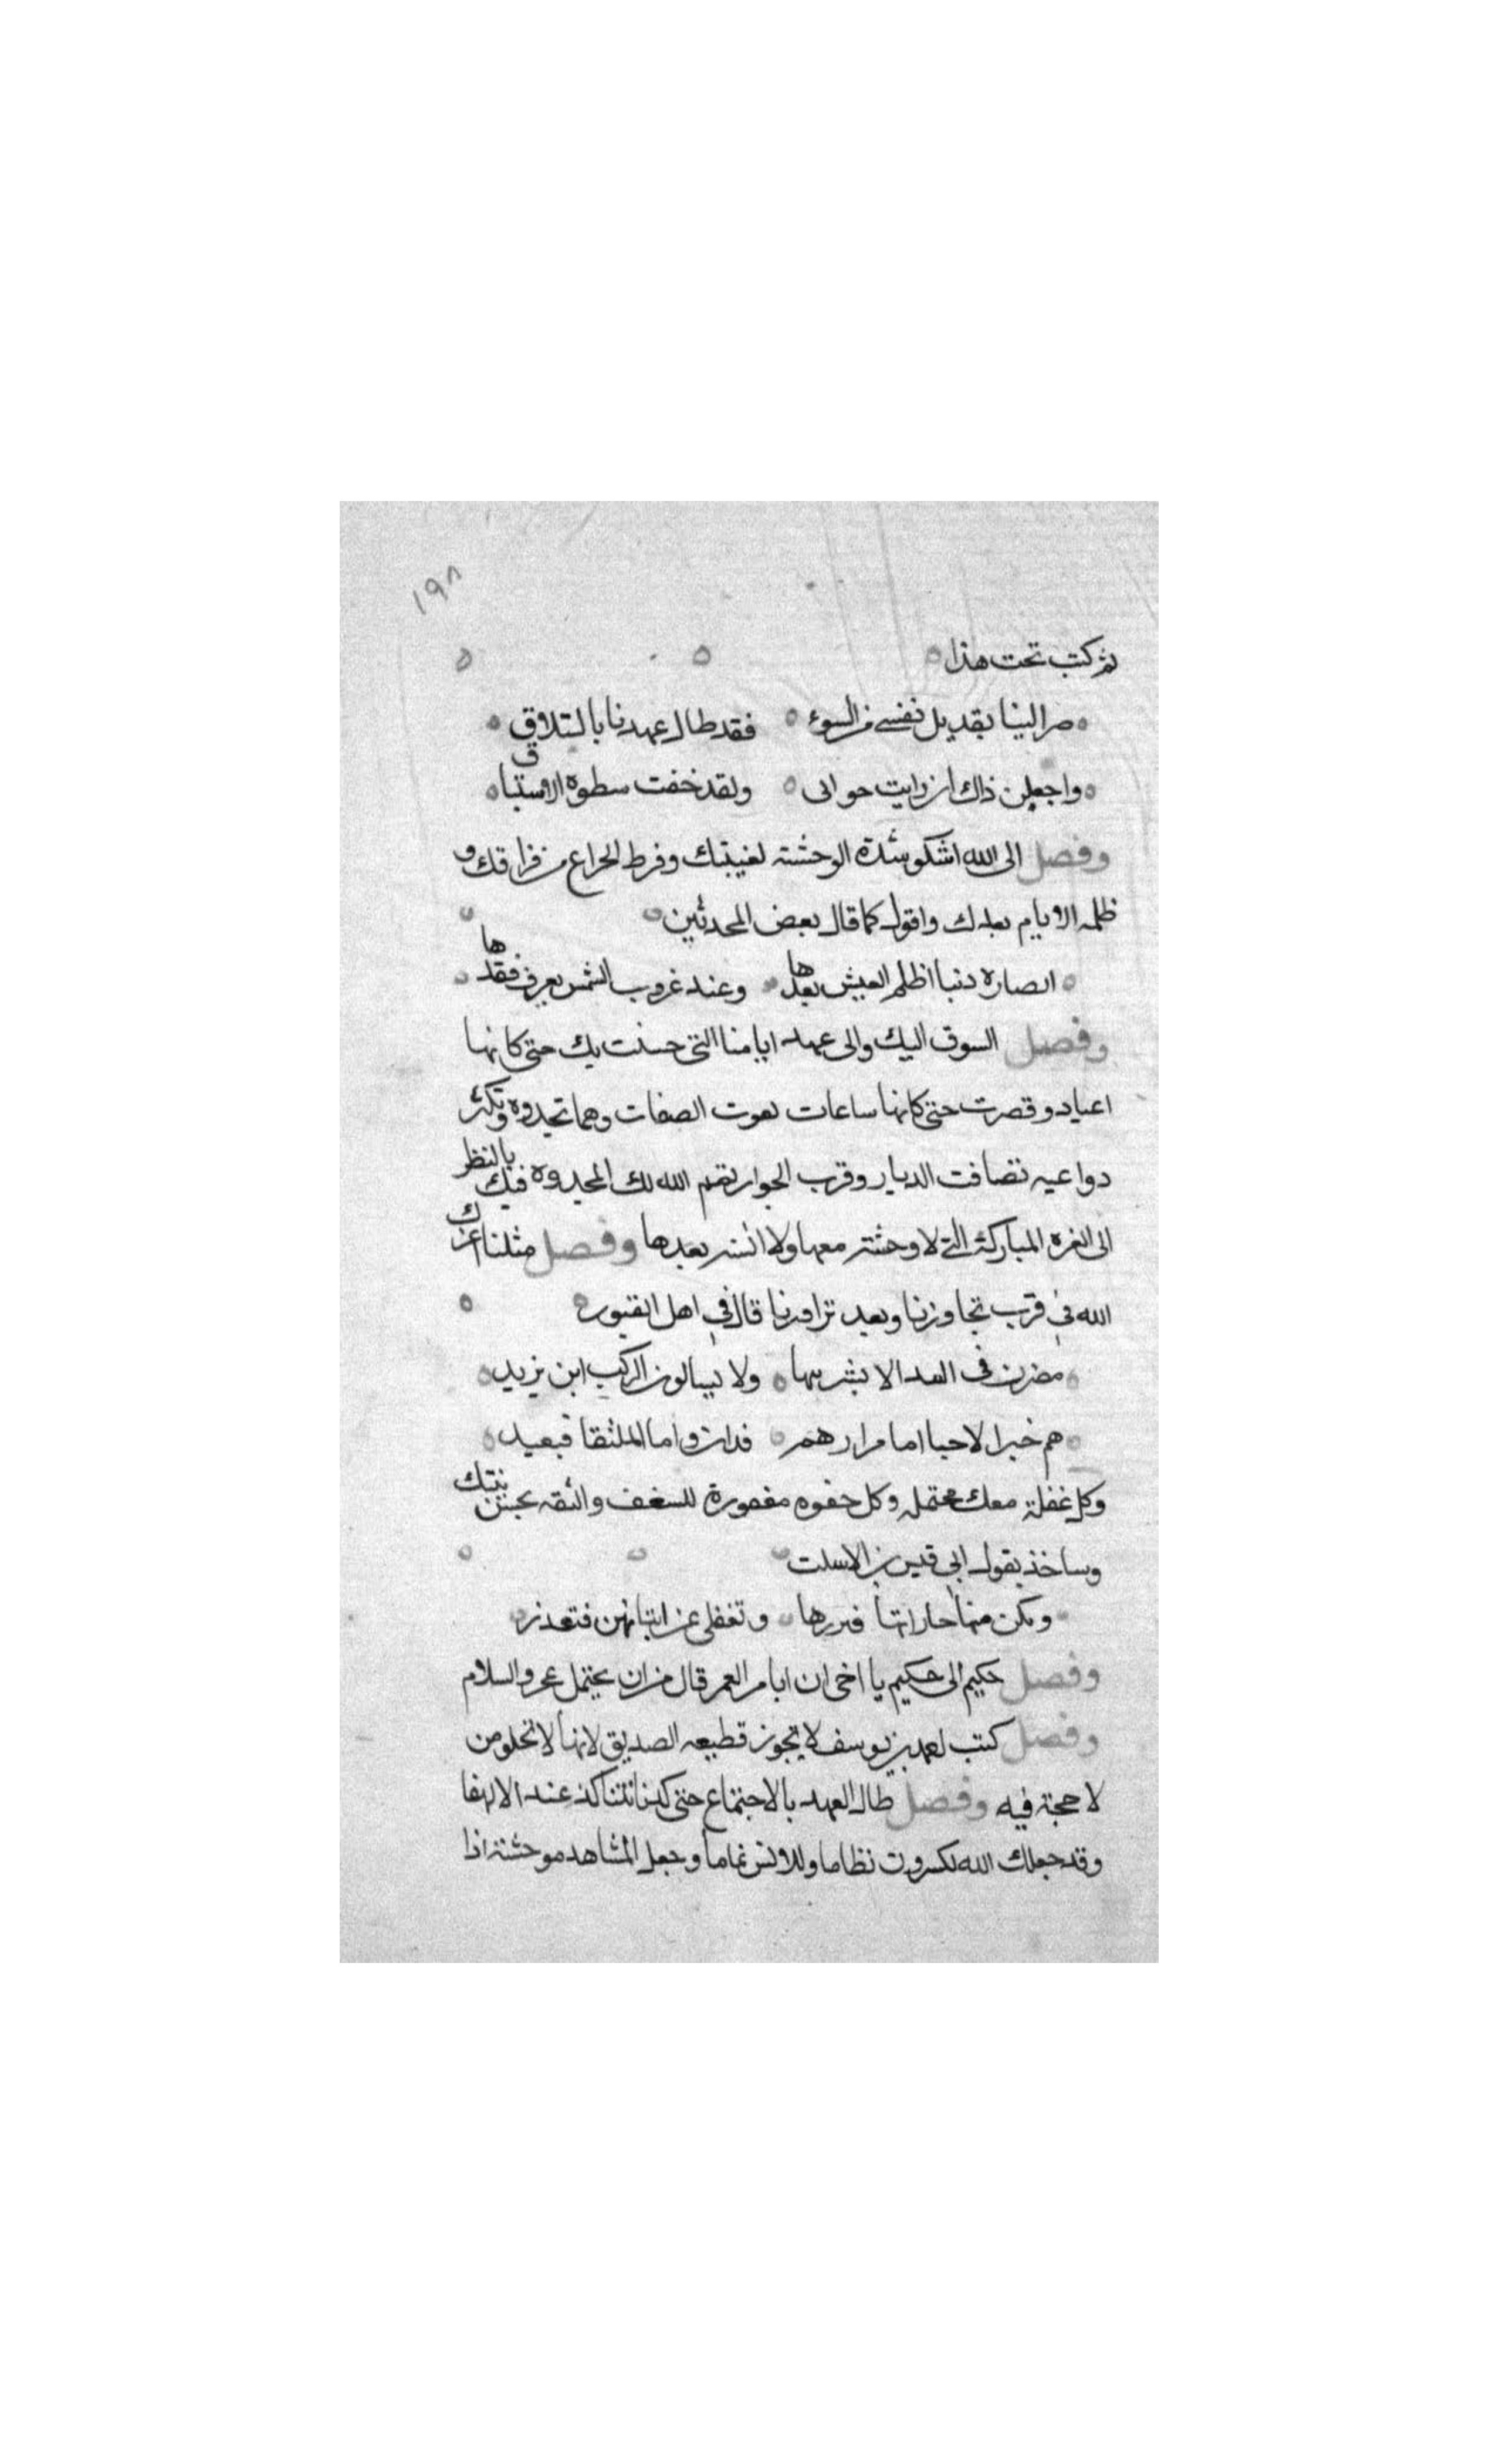 ١٩٨
ثم كتب تحت هذا
صر الينا بقديل نفسي من السوء فقد طال عهدنا بالتلاقي
واجعلن ذاك ان رايت جوابي ولقد خفت سطوة الاستباق
وفصل الى الله اشكو شدة الوحشة لغيبتك وفرط الجزاع من فراقك و
ظلمه الايام بعدك واقول كما قال بعض المحدثين
دنيا اظلم العيش بعدها وعند غروب الشمس يعرف فقدها
وفصل السوق اليك والى عهد ايامنا التي حسنت بك حتى كانها
اعياد وقصرت حتى كانها ساعات لفوت الصفات ومما تجدده وتكثر
دواعيه تصافت الديار وقرب الجوار تقم الله لك المجدده فيك بالنظر
الى الغره المباركة التي لا وحشة معها ولا انس بعدها وفصل مثلنا اعزك
الله في قرب تجاوزنا وبعد تزاورنا قال في اهل القبور
ولا يسالون الركب ابن يزيد
هم خبرا لاحيا اما مرارهم فدان واما الملتقا فبعيد
وكل غفلة معك محتمله وكل جفوه مغفورة للسغف والثقه بحسن نيتك
وساخذ بقول ابي قيس بن الاسلت
ويكرمنها جاراتها فيزرنها وتغفل عن اتيانهن فتعذر
وفصل حكيم الى حكيم يا اخي ان ايام العمر قال من ان يحتمل والسلام
وفصل كتب احمد بن يوسف لا تجوز قطيعه الصديق لانها لا تخلو من
لا حجة فيه وفصل طال العهد بالاجتماع حتى كدنا نتناكر عند الالتقا
وقد جعلك الله للسرور نظاما وللانس تماما وجعل المشاهد موحشة اذا